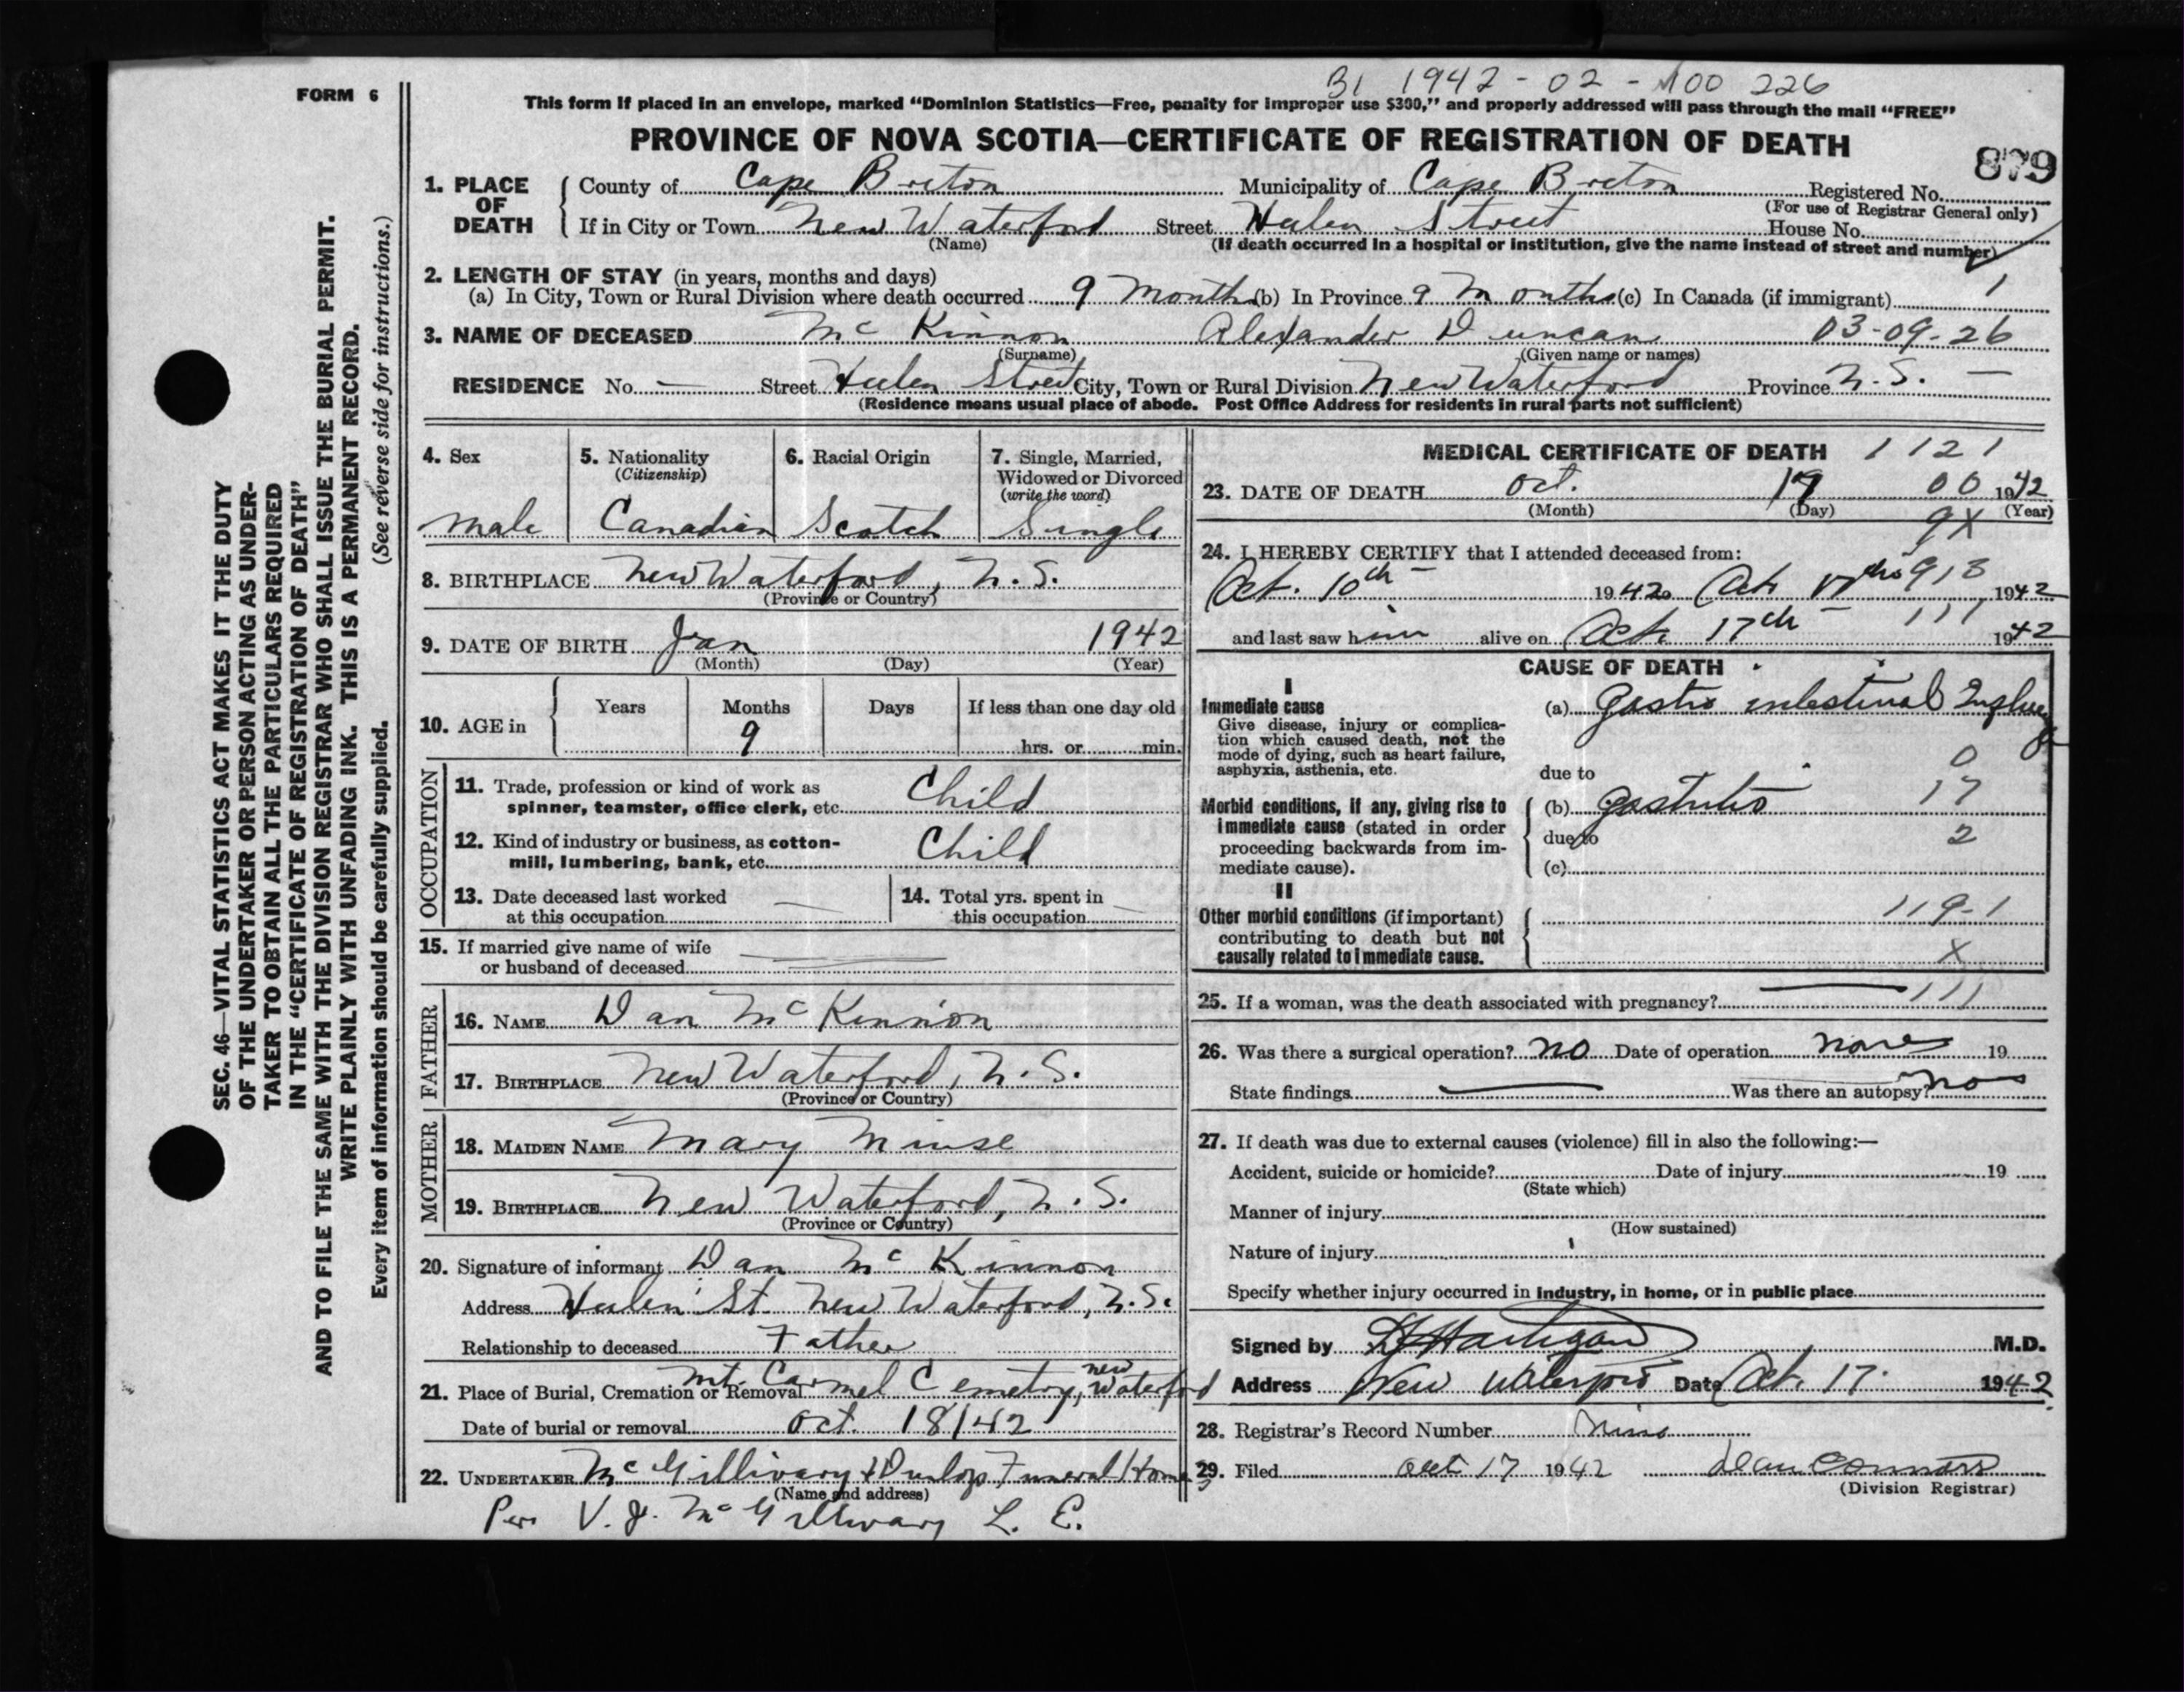 B1 1942-02-100 226
FORM 6
This form if placed in an envelope, marked “Dominion Statistics—Free, penalty for improper use $300,” and properly addressed will pass through the mail “FREE”
PROVINCE OF NOVA SCOTIA—CERTIFICATE OF REGISTRATION OF DEATH
879
1. PLACE OF DEATH County of Cape Breton Municipality of Cape Breton Registered No.
(For use of Registrar General only)
If in City or Town New Waterford Street Helen Street House No.
(Name) (If death occurred in a hospital or institution, give the name instead of street and number)
2. LENGTH OF STAY (in years, months and days)
(a) In City, Town or Rural Division where death occurred 9 Months (b) In Province 9 Months (c) In Canada (if immigrant) 1
3. NAME OF DECEASED McKinnon Alexander Duncan 03-09-26
(Surname) (Given name or names)
RESIDENCE No. — Street Helen Street City, Town or Rural Division New Waterford Province N.S. —
(Residence means usual place of abode. Post Office Address for residents in rural parts not sufficient)
SEC. 46—VITAL STATISTICS ACT MAKES IT THE DUTY
OF THE UNDERTAKER OR PERSON ACTING AS UNDER-
TAKER TO OBTAIN ALL THE PARTICULARS REQUIRED
IN THE “CERTIFICATE OF REGISTRATION OF DEATH”
AND TO FILE THE SAME WITH THE DIVISION REGISTRAR WHO SHALL ISSUE THE BURIAL PERMIT.
WRITE PLAINLY WITH UNFADING INK. THIS IS A PERMANENT RECORD.
Every item of information should be carefully supplied. (See reverse side for instructions.)
4. Sex 5. Nationality 6. Racial Origin 7. Single, Married,
(Citizenship) Widowed or Divorced
(write the word)
Male Canadian Scotch Single
8. BIRTHPLACE New Waterford, N.S.
(Province or Country)
9. DATE OF BIRTH Jan 1942
(Month) (Day) (Year)
10. AGE in Years Months Days If less than one day old
9 hrs. or min.
OCCUPATION
11. Trade, profession or kind of work as
spinner, teamster, office clerk, etc. Child
12. Kind of industry or business, as cotton-
mill, lumbering, bank, etc. Child
13. Date deceased last worked
at this occupation —
14. Total yrs. spent in
this occupation —
15. If married give name of wife
or husband of deceased
FATHER
16. NAME Dan McKinnon
17. BIRTHPLACE New Waterford, N.S.
(Province or Country)
MOTHER
18. MAIDEN NAME Mary
19. BIRTHPLACE New Waterford, N.S.
(Province or Country)
20. Signature of informant Dan McKinnon
Address Helen St. New Waterford, N.S.
Relationship to deceased Father
21. Place of Burial, Cremation or Removal Mt. Carmel Cemetry, New Waterford
Date of burial or removal Oct. 18/42
22. UNDERTAKER McGillivary & Dunlop Funeral Home
(Name and address)
Per V. J. McGillivary L. E.
MEDICAL CERTIFICATE OF DEATH 1121
23. DATE OF DEATH Oct. 17 00 1942
(Month) (Day) (Year)
9X
24. I HEREBY CERTIFY that I attended deceased from:
Oct. 10th 1942 to Oct. 17th 913 1942
and last saw him alive on Oct. 17th 111 1942
CAUSE OF DEATH
I
Immediate cause
Give disease, injury or complica-
tion which caused death, not the
mode of dying, such as heart failure,
asphyxia, asthenia, etc.
(a) Gastro intestinal
0
due to
Morbid conditions, if any, giving rise to
immediate cause (stated in order
proceeding backwards from im-
mediate cause).
(b) Gastritis 17
due to 2
(c)
II
Other morbid conditions (if important)
contributing to death but not
causally related to immediate cause.
119-1
X
25. If a woman, was the death associated with pregnancy? — 111
26. Was there a surgical operation? no Date of operation none 19
State findings — Was there an autopsy? no
27. If death was due to external causes (violence) fill in also the following:—
Accident, suicide or homicide? Date of injury 19
(State which)
Manner of injury
(How sustained)
Nature of injury
Specify whether injury occurred in industry, in home, or in public place
Signed by Hartigan M.D.
Address New Waterford Date Oct. 17. 1942
28. Registrar's Record Number
29. Filed Oct 17 1942
(Division Registrar)